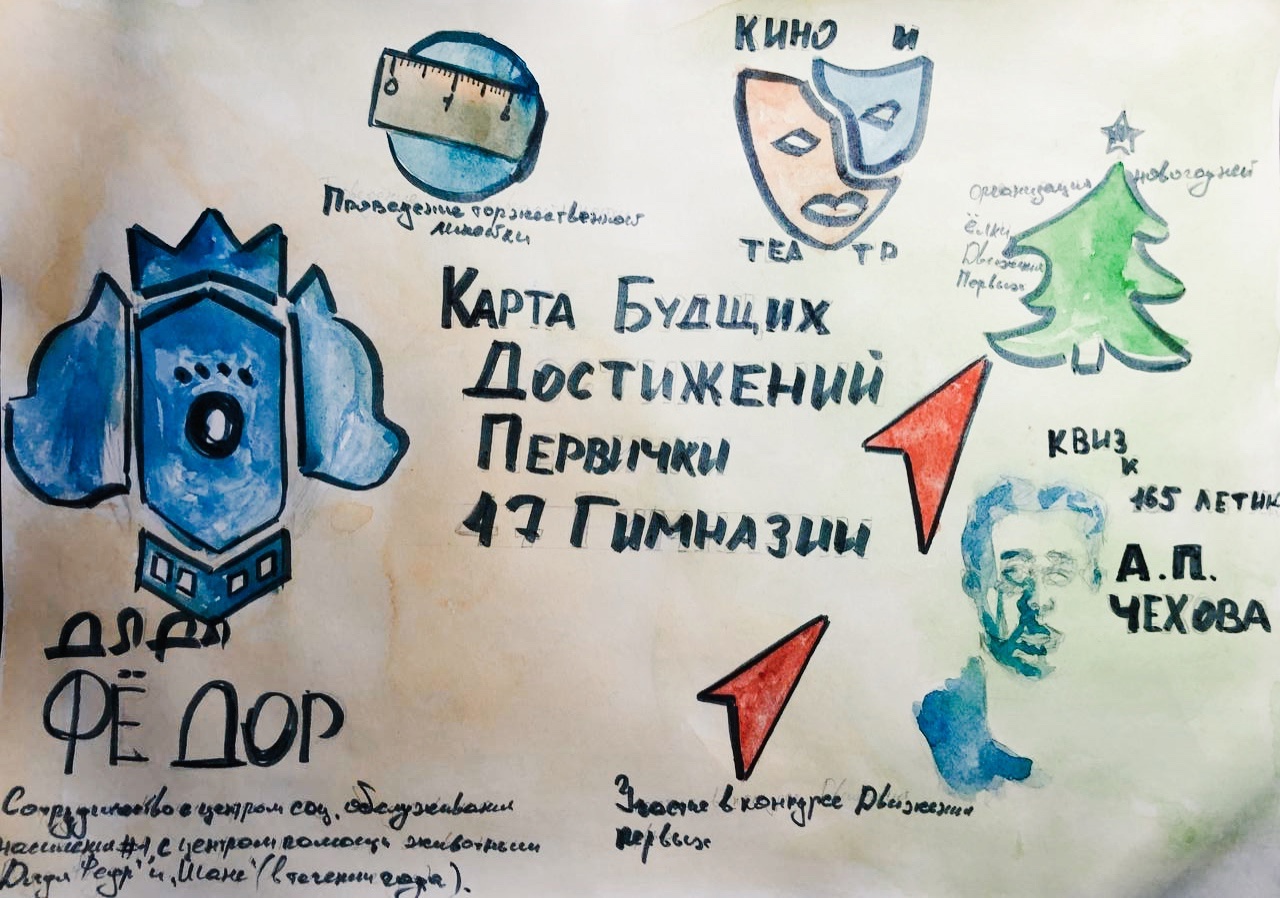 КИНО И
ТЕАТР
0 1 2
Проведение торжественной
линейки
Организация новогодней
ёлки
Движения
Первых
Карта Будщих
Достижений
Первички
17 Гимназии
КВИЗ
К
165 ЛЕТИЮ
А.П.
ЧЕХОВА
ДЯДЯ
ФЁДОР
Сотрудничество с центром соц. обслуживания
населения #1, с центром помощи животным
"Дядя Федр" и "Шанс" (в течении года).
Участие в конкурсе Движения
первых